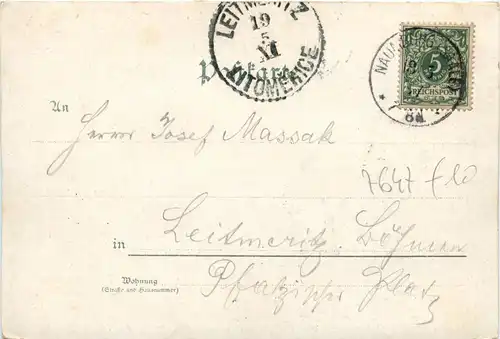 LEITMERITZ
19
5
XI
LITOMĚŘICE
Postkarte
NAUMBURG
5
REICHSPOST
An
Herrn Josef Massak
7647
in Leitmeritz Böhmen
Wohnung
(Straße und Hausnummer)
Pfalzischer Platz